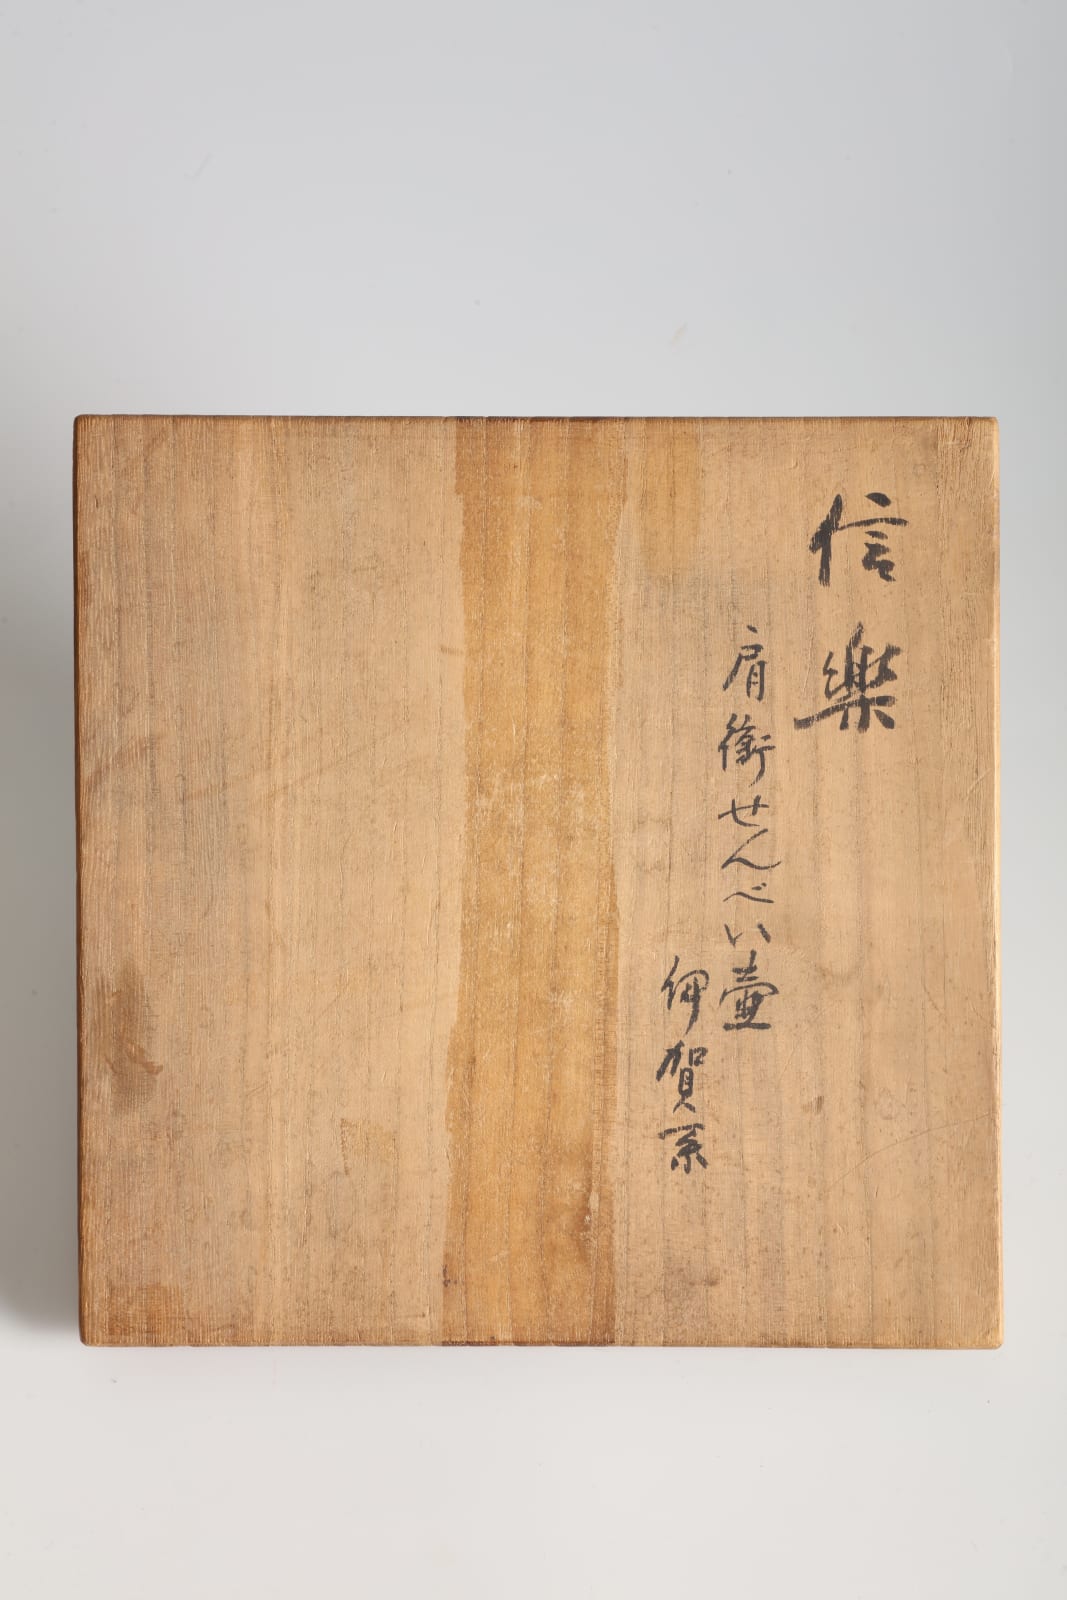 信樂
肩衝せんべい壷
伊賀系